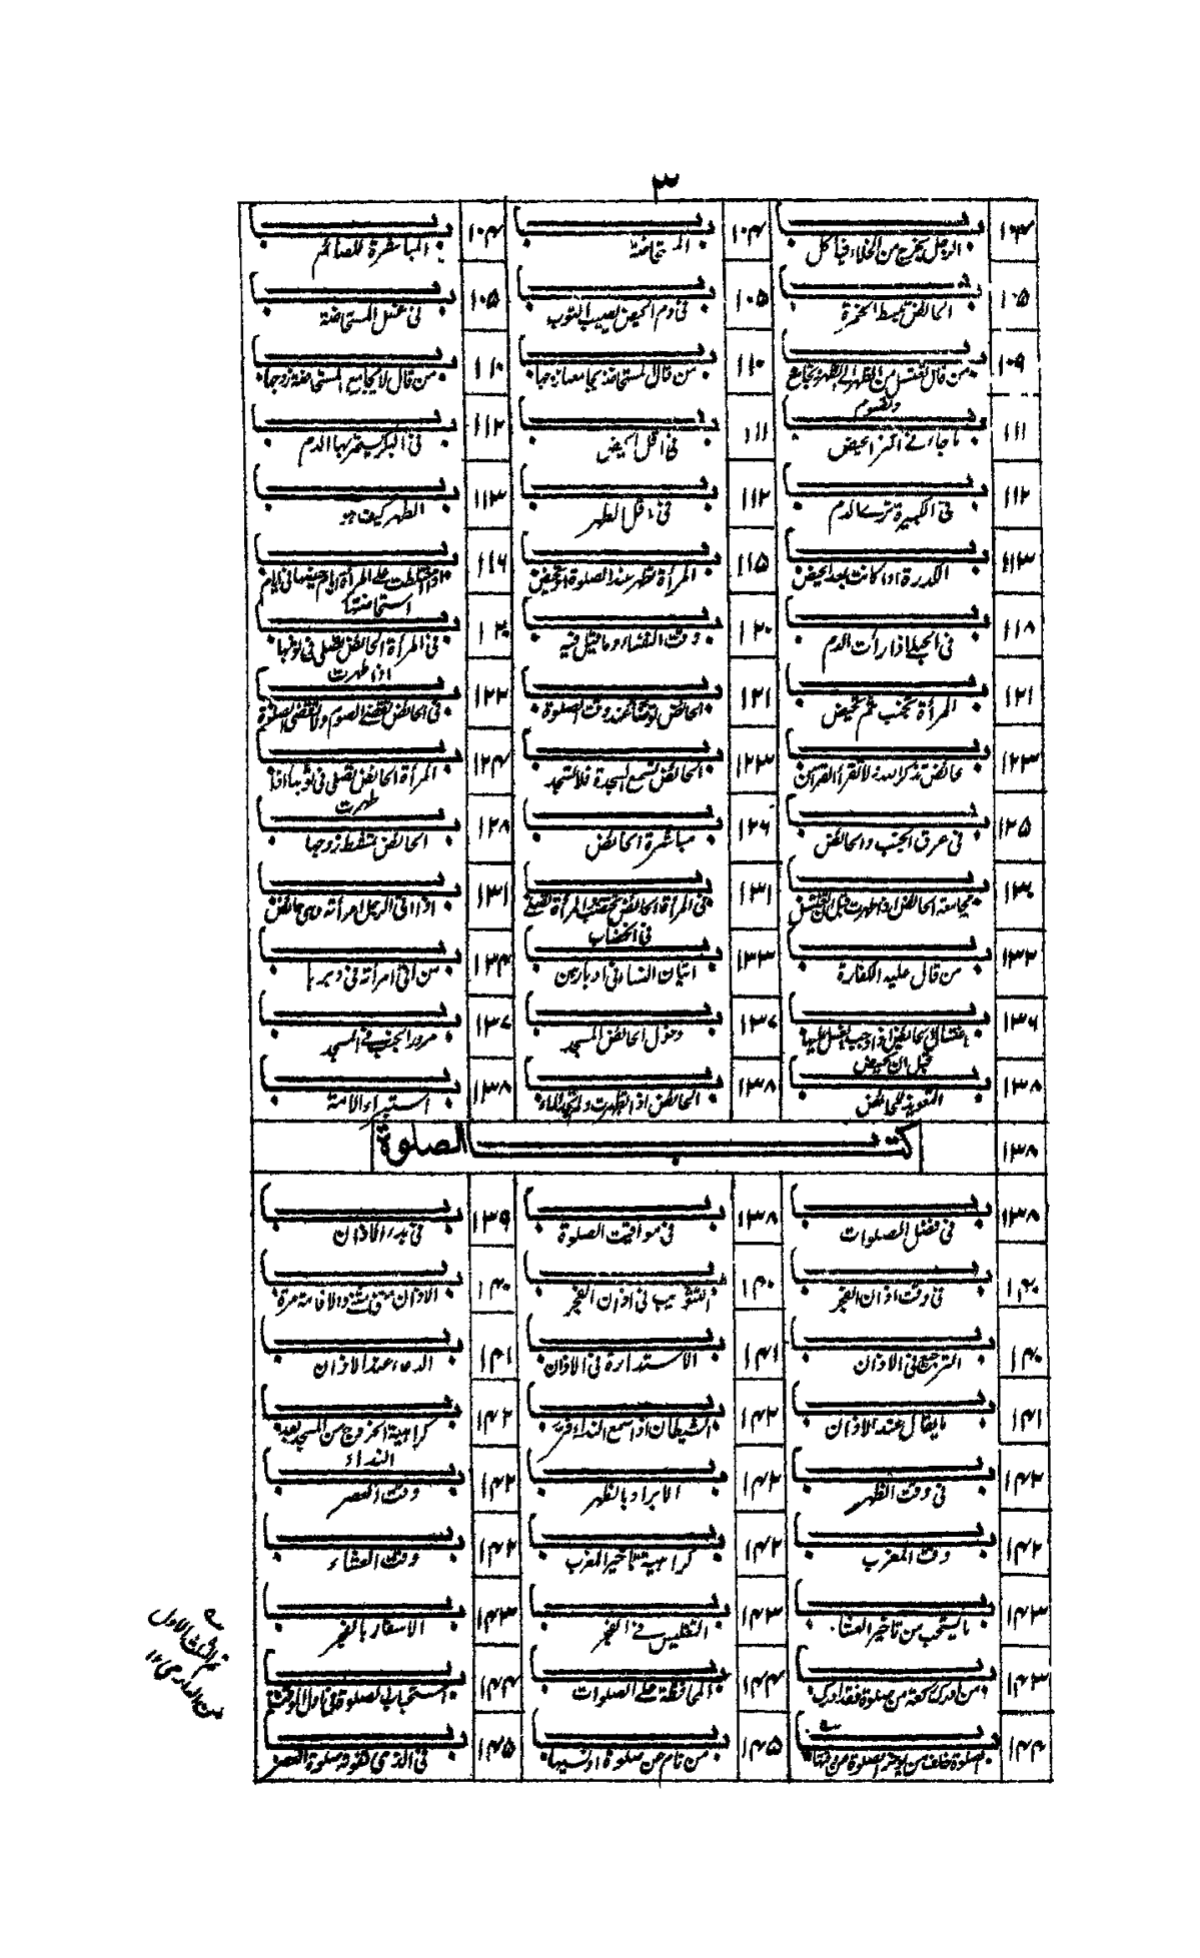 ٣
١٠٣ باب الرجل يخرج من الخلاء فيأكل
١٠٤ باب المستحاضة
١٠٤ باب المباشرة للصائم
١٠٥ باب الحائض تبسط الخمرة
١٠٥ باب فى دم الحيض يصيب الثوب
١٠٥ باب فى غسل المستحاضة
١٠٩ باب من قال تغتسل من الظهر الى الظهر وتجامع وتصوم
١١٠ باب من قال المستحاضة يجامعها زوجها
١١٠ باب من قال لا يجامع المستحاضة زوجها
١١١ باب ما جاء فى اكثر الحيض
١١١ باب فى اقل الحيض
١١٢ باب فى البكر يستمر بها الدم
١١٢ باب فى الكبيرة ترى الدم
١١٢ باب فى اقل الطهر
١١٣ باب الطهر كيف هو
١١٣ باب الكدرة اذا كانت بعد الحيض
١١٥ باب المرأة تطهر عند الصلوة او تحيض
١١٦ باب اذا اختلطت على المرأة ايام حيضها فى ايام استحاضتها
١١٨ باب فى الحبلى اذا رأت الدم
١٢٠ باب وقت النفساء وما قيل فيه
١٢٠ باب فى المرأة الحائض تصلى فى ثوبها اذا طهرت
١٢١ باب المرأة تجنب ثم تحيض
١٢١ باب الحائض توضأ عند وقت الصلوة
١٢٢ باب فى الحائض تقضى الصوم ولا تقضى الصلوة
١٢٣ باب حائض تذكر الله ولا تقرأ القرآن
١٢٣ باب الحائض تسمع السجدة فلا تسجد
١٢٤ باب المرأة الحائض تصلى فى ثوبها اذا طهرت
١٢٥ باب فى عرق الجنب والحائض
١٢٦ باب مباشرة الحائض
١٢٨ باب الحائض تمشط زوجها
١٣٠ باب مجامعة الحائض اذا طهرت قبل ان تغتسل
١٣١ باب فى المرأة الحائض تختضب المرأة تصلى فى الخضاب
١٣١ باب اذا اتى الرجل امرأته وهى حائض
١٣٢ باب من قال عليه الكفارة
١٣٣ باب اتيان النساء فى ادبارهن
١٣٤ باب من اتى امرأته فى دبرها
١٣٦ باب اغتسال الحائض اذا وجب الغسل عليها قبل ان تحيض
١٣٧ باب دخول الحائض المسجد
١٣٧ باب مرور الجنب فى المسجد
١٣٨ باب التعويذ للحائض
١٣٨ باب الحائض اذا طهرت ولم تجد الماء
١٣٨ باب استبراء الامة
١٣٨ كتاب الصلوة
١٣٨ باب فى فضل الصلوات
١٣٨ باب فى مواقيت الصلوة
١٣٩ باب فى بدء الاذان
١٤٠ باب فى وقت اذان الفجر
١٤٠ باب التثويب فى اذان الفجر
١٤٠ باب الاذان مثنى مثنى والاقامة مرة
١٤٠ باب الترجيع فى الاذان
١٤١ باب الاستدارة فى الاذان
١٤١ باب الدعاء عند الاذان
١٤١ باب ما يقال عند الاذان
١٤٢ باب الشيطان اذا سمع النداء فر
١٤٢ باب كراهية الخروج من المسجد بعد النداء
١٤٢ باب فى وقت الظهر
١٤٢ باب الابراد بالظهر
١٤٢ باب وقت العصر
١٤٢ باب وقت المغرب
١٤٢ باب كراهية تاخير المغرب
١٤٢ باب وقت العشاء
١٤٣ باب ما يستحب من تاخير العشاء
١٤٣ باب التغليس فى الفجر
١٤٣ باب الاسفار بالفجر
١٤٣ باب من ادرك ركعة من صلوة فقد ادرك
١٤٤ باب المحافظة على الصلوات
١٤٤ باب استحباب الصلوة فى اول الوقت
١٤٤ باب الصلوة خلف من يؤخر الصلوة عن وقتها
١٤٥ باب من نام عن صلوة او نسيها
١٤٥ باب فى الذى تفوته صلوة العصر
تم الثلث الاول